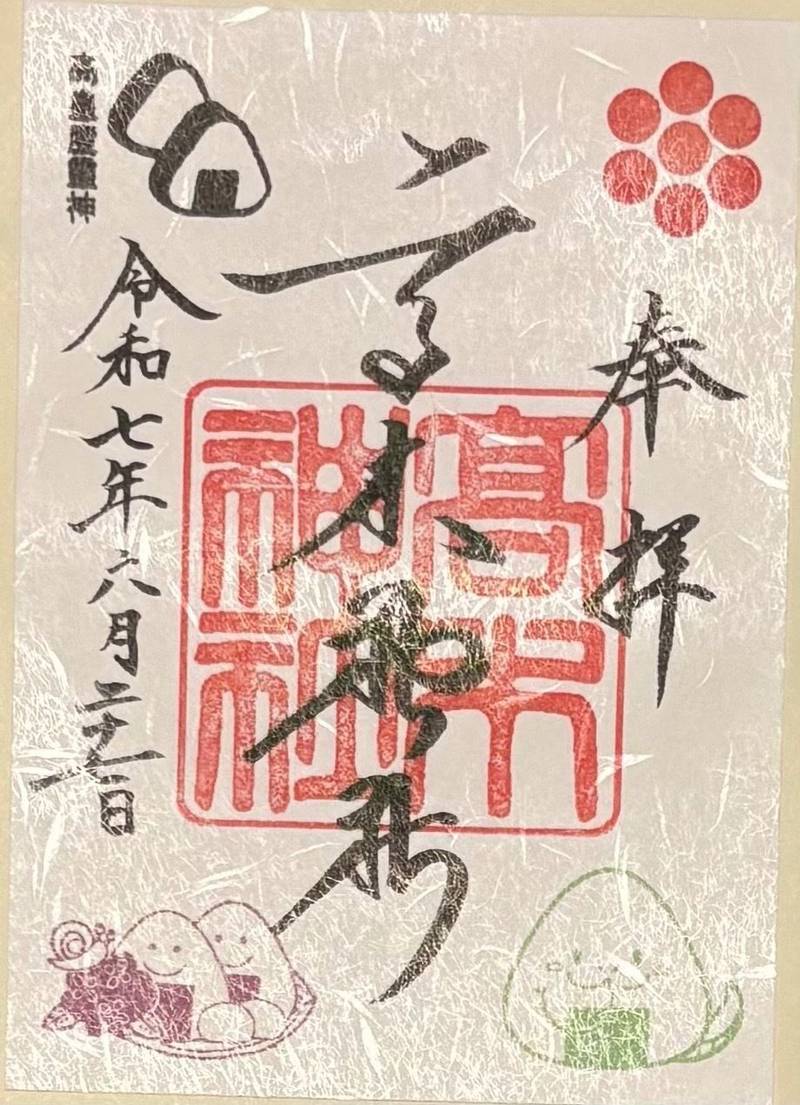 奉拝
高木神社
高木
神社
令和七年六月二十一日
高皇産霊神